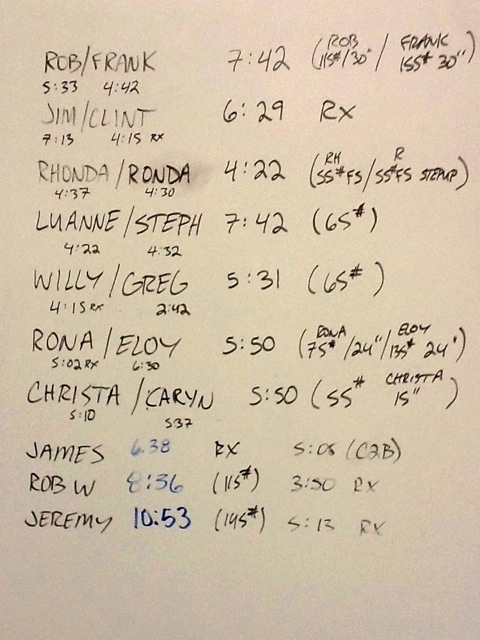 ROB/FRANK 7:42 (ROB 115#/30" / FRANK 155# 30")
5:33 4:42
JIM/CLINT 6:29 RX
7:13 4:15 RX
RHONDA/RONDA 4:22 (RH 55# FS / R 55# FS STEPUP)
4:37 4:30
LUANNE/STEPH 7:42 (65#)
4:22 4:32
WILLY/GREG 5:31 (65#)
4:15 RX 2:42
RONA/ELOY 5:50 (RONA 75#/24" / ELOY 135# 24")
5:02 RX 6:30
CHRISTA/CARYN 5:50 (55# CHRISTA 15")
5:10 5:37
JAMES 6:38 RX 5:05 (C2B)
ROB W 8:36 (115#) 3:50 RX
JEREMY 10:53 (145#) 5:13 RX